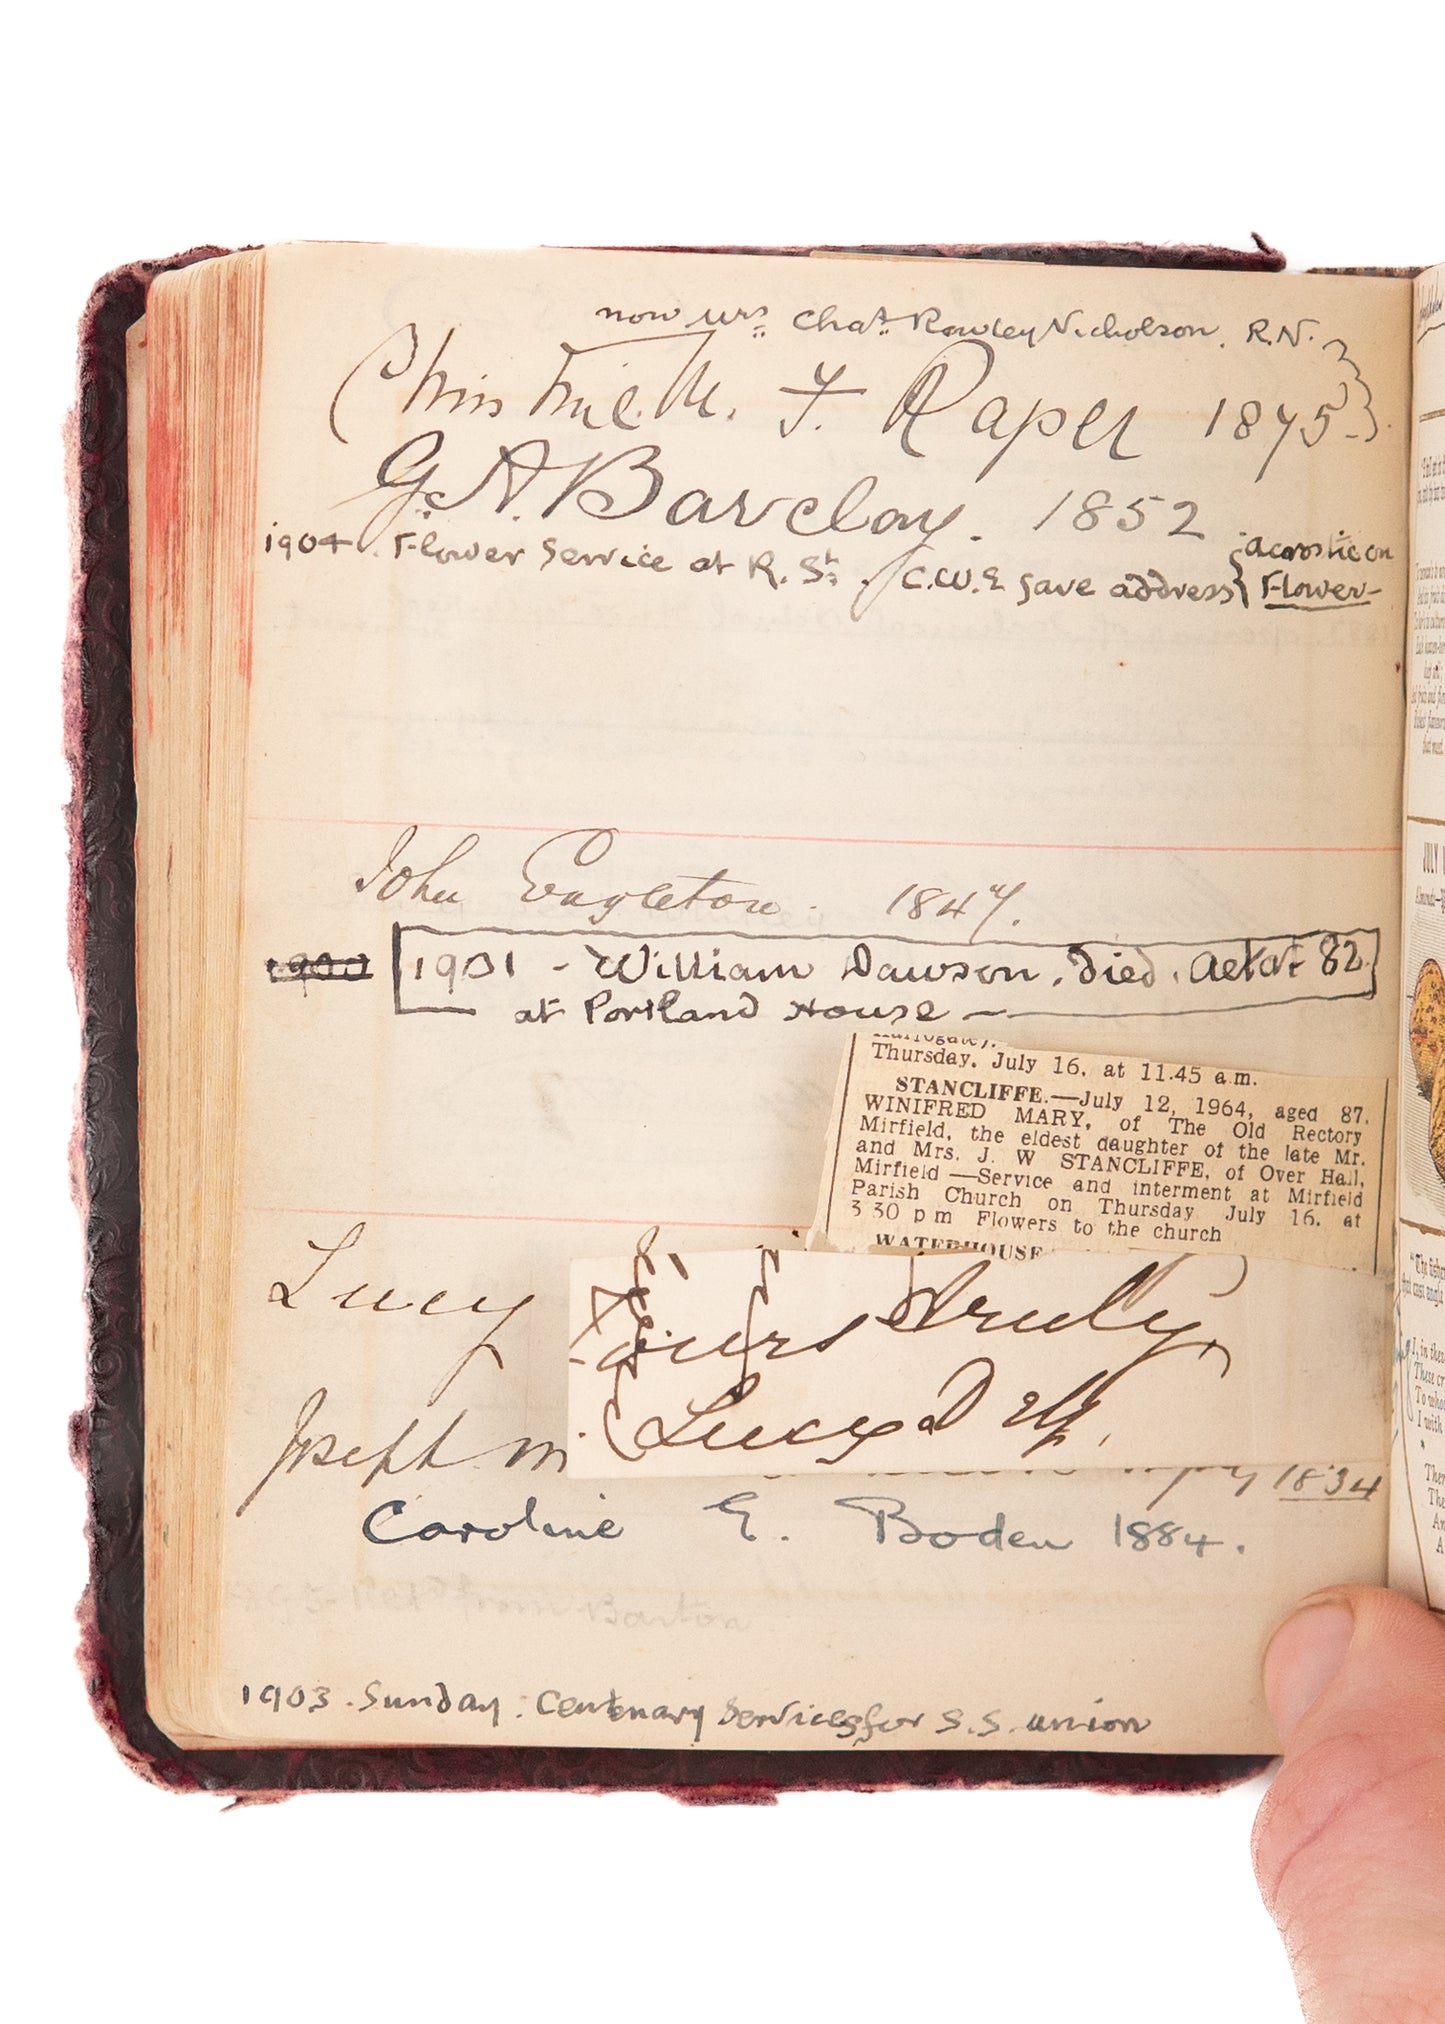 now Mrs Chas. Rowley Nicholson. R.N.
Christine. M. F. Raper 1875.
G. A. Barclay. 1852
1904. Flower Service at R. St. C.W.E gave address { acrostic on
Flower-
John Eagleton. 1847.
1900 1901 - William Dawson. died. aetat 82.
at Portland House -
Harrogate).
Thursday, July 16, at 11.45 a.m.
STANCLIFFE.—July 12, 1964, aged 87,
WINIFRED MARY, of The Old Rectory
Mirfield, the eldest daughter of the late Mr.
and Mrs. J. W STANCLIFFE, of Over Hall,
Mirfield —Service and interment at Mirfield
Parish Church on Thursday July 16, at
3 30 p m Flowers to the church
WATERHOUSE
Lucy
Yours truly,
Lucy
Joseph
1834
Caroline E. Boden 1884.
1903. Sunday: Centenary Services for S.S. union
JULY